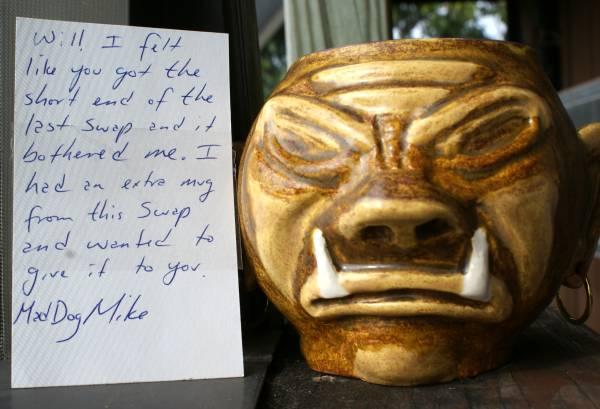 Will, I felt
like you got the
short end of the
last swap and it
bothered me. I
had an extra mug
from this swap
and wanted to
give it to you.
MadDog Mike